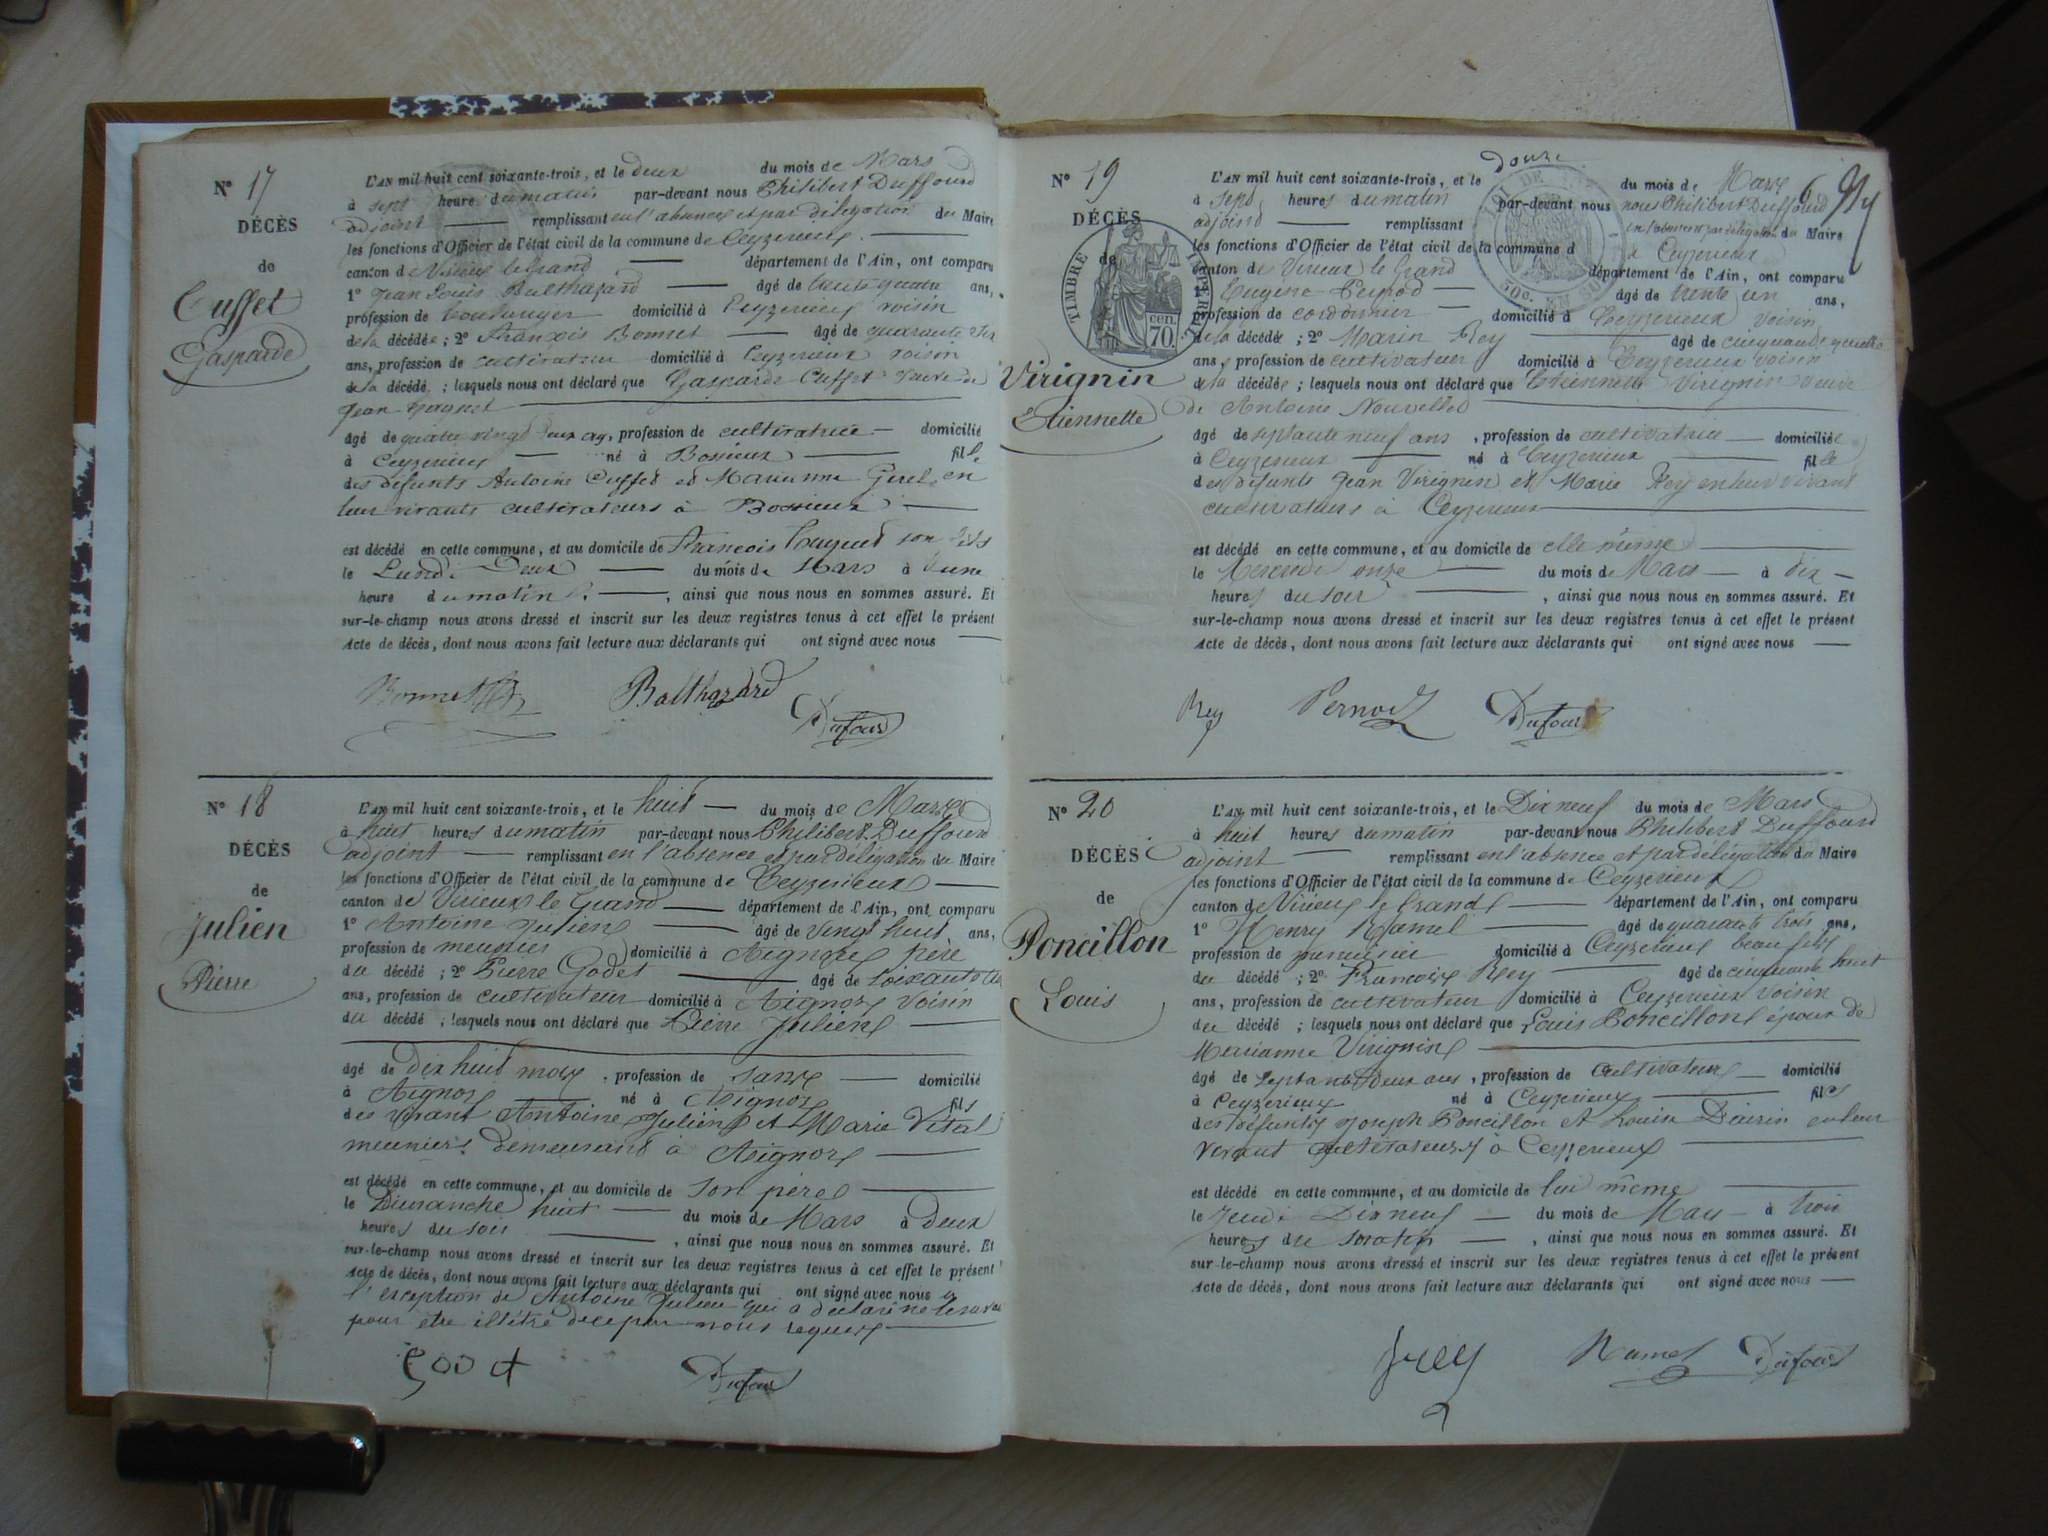 N° 17
DÉCÈS
de
Cuffet
Gasparde
L'AN mil huit cent soixante-trois, et le deux du mois de Mars
à sept heure du matin par-devant nous Philibert Duffourd
adjoint remplissant en l'absence et par délégation du Maire
les fonctions d'Officier de l'état civil de la commune de Ceyzerieux
canton de Virieux le Grand département de l'Ain, ont comparu
1° Jean Louis Balthazard âgé de trente quatre ans,
profession de boulanger domicilié à Ceyzerieux voisin
de la décédée ; 2° François Bonnet âgé de quarante
ans, profession de cultivateur domicilié à Ceyzerieux voisin
de la décédé ; lesquels nous ont déclaré que Gasparde Cuffet veuve de
Jean
âgé de quatre vingt deux ans, profession de cultivatrice domicilié
à Ceyzerieux né à Bossieux fille
des défunts Antoine Cuffet et Marianne en
leur vivants cultivateurs à Bossieux
est décédé en cette commune, et au domicile de François son fils
le Lundi Deux du mois de Mars à une
heure du matin, ainsi que nous nous en sommes assuré. Et
sur-le-champ nous avons dressé et inscrit sur les deux registres tenus à cet effet le présent
Acte de décès, dont nous avons fait lecture aux déclarants qui ont signé avec nous
Bonnet Balthazard Dufour
N° 18
DÉCÈS
de
Julien
Pierre
L'AN mil huit cent soixante-trois, et le huit du mois de Mars
à huit heures du matin par-devant nous Philibert Duffourd
adjoint remplissant en l'absence et par délégation du Maire
les fonctions d'Officier de l'état civil de la commune de Ceyzerieux
canton de Virieux le Grand département de l'Ain, ont comparu
1° Antoine Julien âgé de vingt huit ans,
profession de meunier domicilié à Aignoz père
du décédé ; 2° Pierre Godet âgé de soixante
ans, profession de cultivateur domicilié à Aignoz voisin
du décédé ; lesquels nous ont déclaré que Pierre Julien
âgé de dix huit mois, profession de sans domicilié
à Aignoz né à Aignoz fils
de vivant Antoine Julien et Marie Vital
meuniers demeurant à Aignoz
est décédé en cette commune, et au domicile de son père
le Dimanche huit du mois de Mars à deux
heures du soir, ainsi que nous nous en sommes assuré. Et
sur-le-champ nous avons dressé et inscrit sur les deux registres tenus à cet effet le présent
Acte de décès, dont nous avons fait lecture aux déclarants qui ont signé avec nous à
l'exception de Antoine Julien qui a déclaré ne le
pour être illétré de ce par nous requis
Dufour
N° 19
DÉCÈS
de
TIMBRE IMPÉRIAL
cen. 70.
Virignin
Etiennette
L'AN mil huit cent soixante-trois, et le douze du mois de Mars
à sept heures du matin par-devant nous nous Philibert Duffourd
adjoint remplissant en l'absence et par délégation du Maire
les fonctions d'Officier de l'état civil de la commune d à Ceyzerieux
canton de Virieux le Grand département de l'Ain, ont comparu
1° Eugène Pernod âgé de trente un ans,
profession de cordonnier domicilié à Ceyzerieux voisin
de la décédé ; 2° Marin Rey âgé de cinquante
ans, profession de cultivateur domicilié à Ceyzerieux voisin
de la décédée ; lesquels nous ont déclaré que Etiennette Virignin veuve
de Antoine Nouvellet
âgé de septante neuf ans, profession de cultivatrice domicilié
à Ceyzerieux né à Ceyzerieux fille
des défunts Jean Virignin et Marie Rey en leur vivant
cultivateurs à Ceyzerieux
est décédé en cette commune, et au domicile de elle même
le Mercredi onze du mois de Mars à dix
heures du soir, ainsi que nous nous en sommes assuré. Et
sur-le-champ nous avons dressé et inscrit sur les deux registres tenus à cet effet le présent
Acte de décès, dont nous avons fait lecture aux déclarants qui ont signé avec nous
Rey Pernod Dufour
N° 20
DÉCÈS
de
Poncillon
Louis
L'AN mil huit cent soixante-trois, et le Dix neuf du mois de Mars
à huit heures du matin par-devant nous Philibert Duffourd
adjoint remplissant en l'absence et par délégation du Maire
les fonctions d'Officier de l'état civil de la commune de Ceyzerieux
canton de Virieux le Grand département de l'Ain, ont comparu
1° Henry Ramel âgé de quarante trois ans,
profession de menuisier domicilié à Ceyzerieux beau fils
du décédé ; 2° François Rey âgé de cinquante huit
ans, profession de cultivateur domicilié à Ceyzerieux voisin
du décédé ; lesquels nous ont déclaré que Louis Poncillon époux de
Marianne Virignin
âgé de septante deux ans, profession de cultivateur domicilié
à Ceyzerieux né à Ceyzerieux fils
des défunts Joseph Poncillon et Louise en leur
vivant cultivateurs à Ceyzerieux
est décédé en cette commune, et au domicile de lui même
le Jeudi Dix neuf du mois de Mars à trois
heures du matin, ainsi que nous nous en sommes assuré. Et
sur-le-champ nous avons dressé et inscrit sur les deux registres tenus à cet effet le présent
Acte de décès, dont nous avons fait lecture aux déclarants qui ont signé avec nous
f rey Ramel Dufour